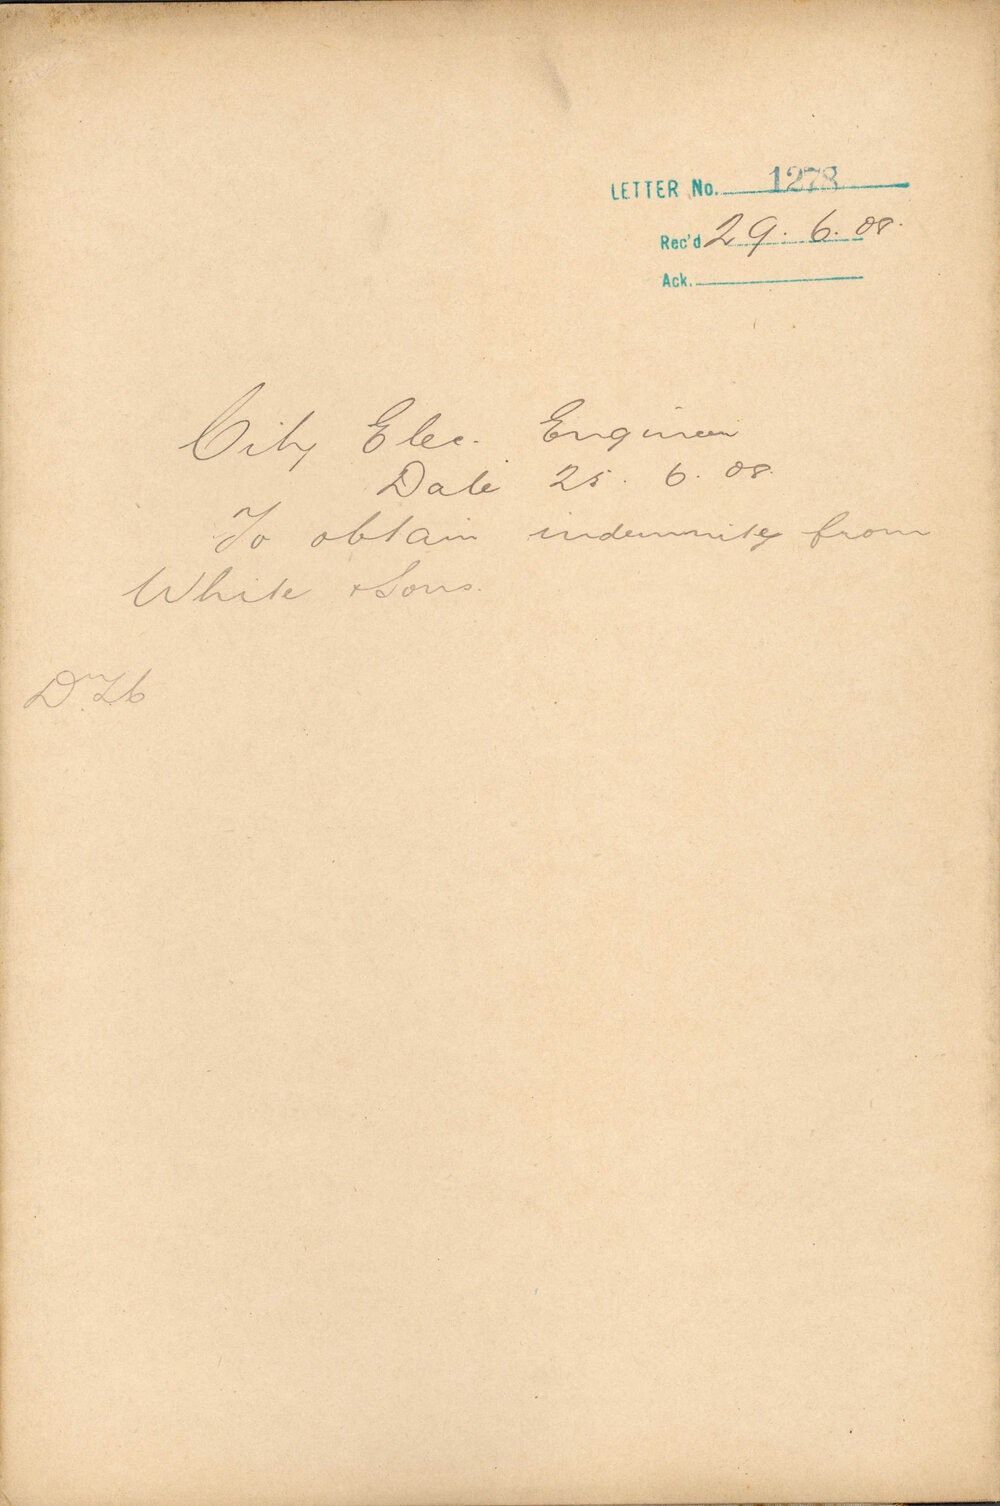 LETTER No. 1278
Rec'd 29. 6. 08.
Ack.
City Elec. Engineer
Date 25. 6. 08.
To obtain indemnity from
White & Sons.